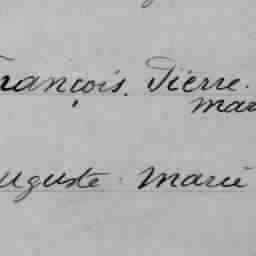 François. Pierre.
mar
uguste. Marie